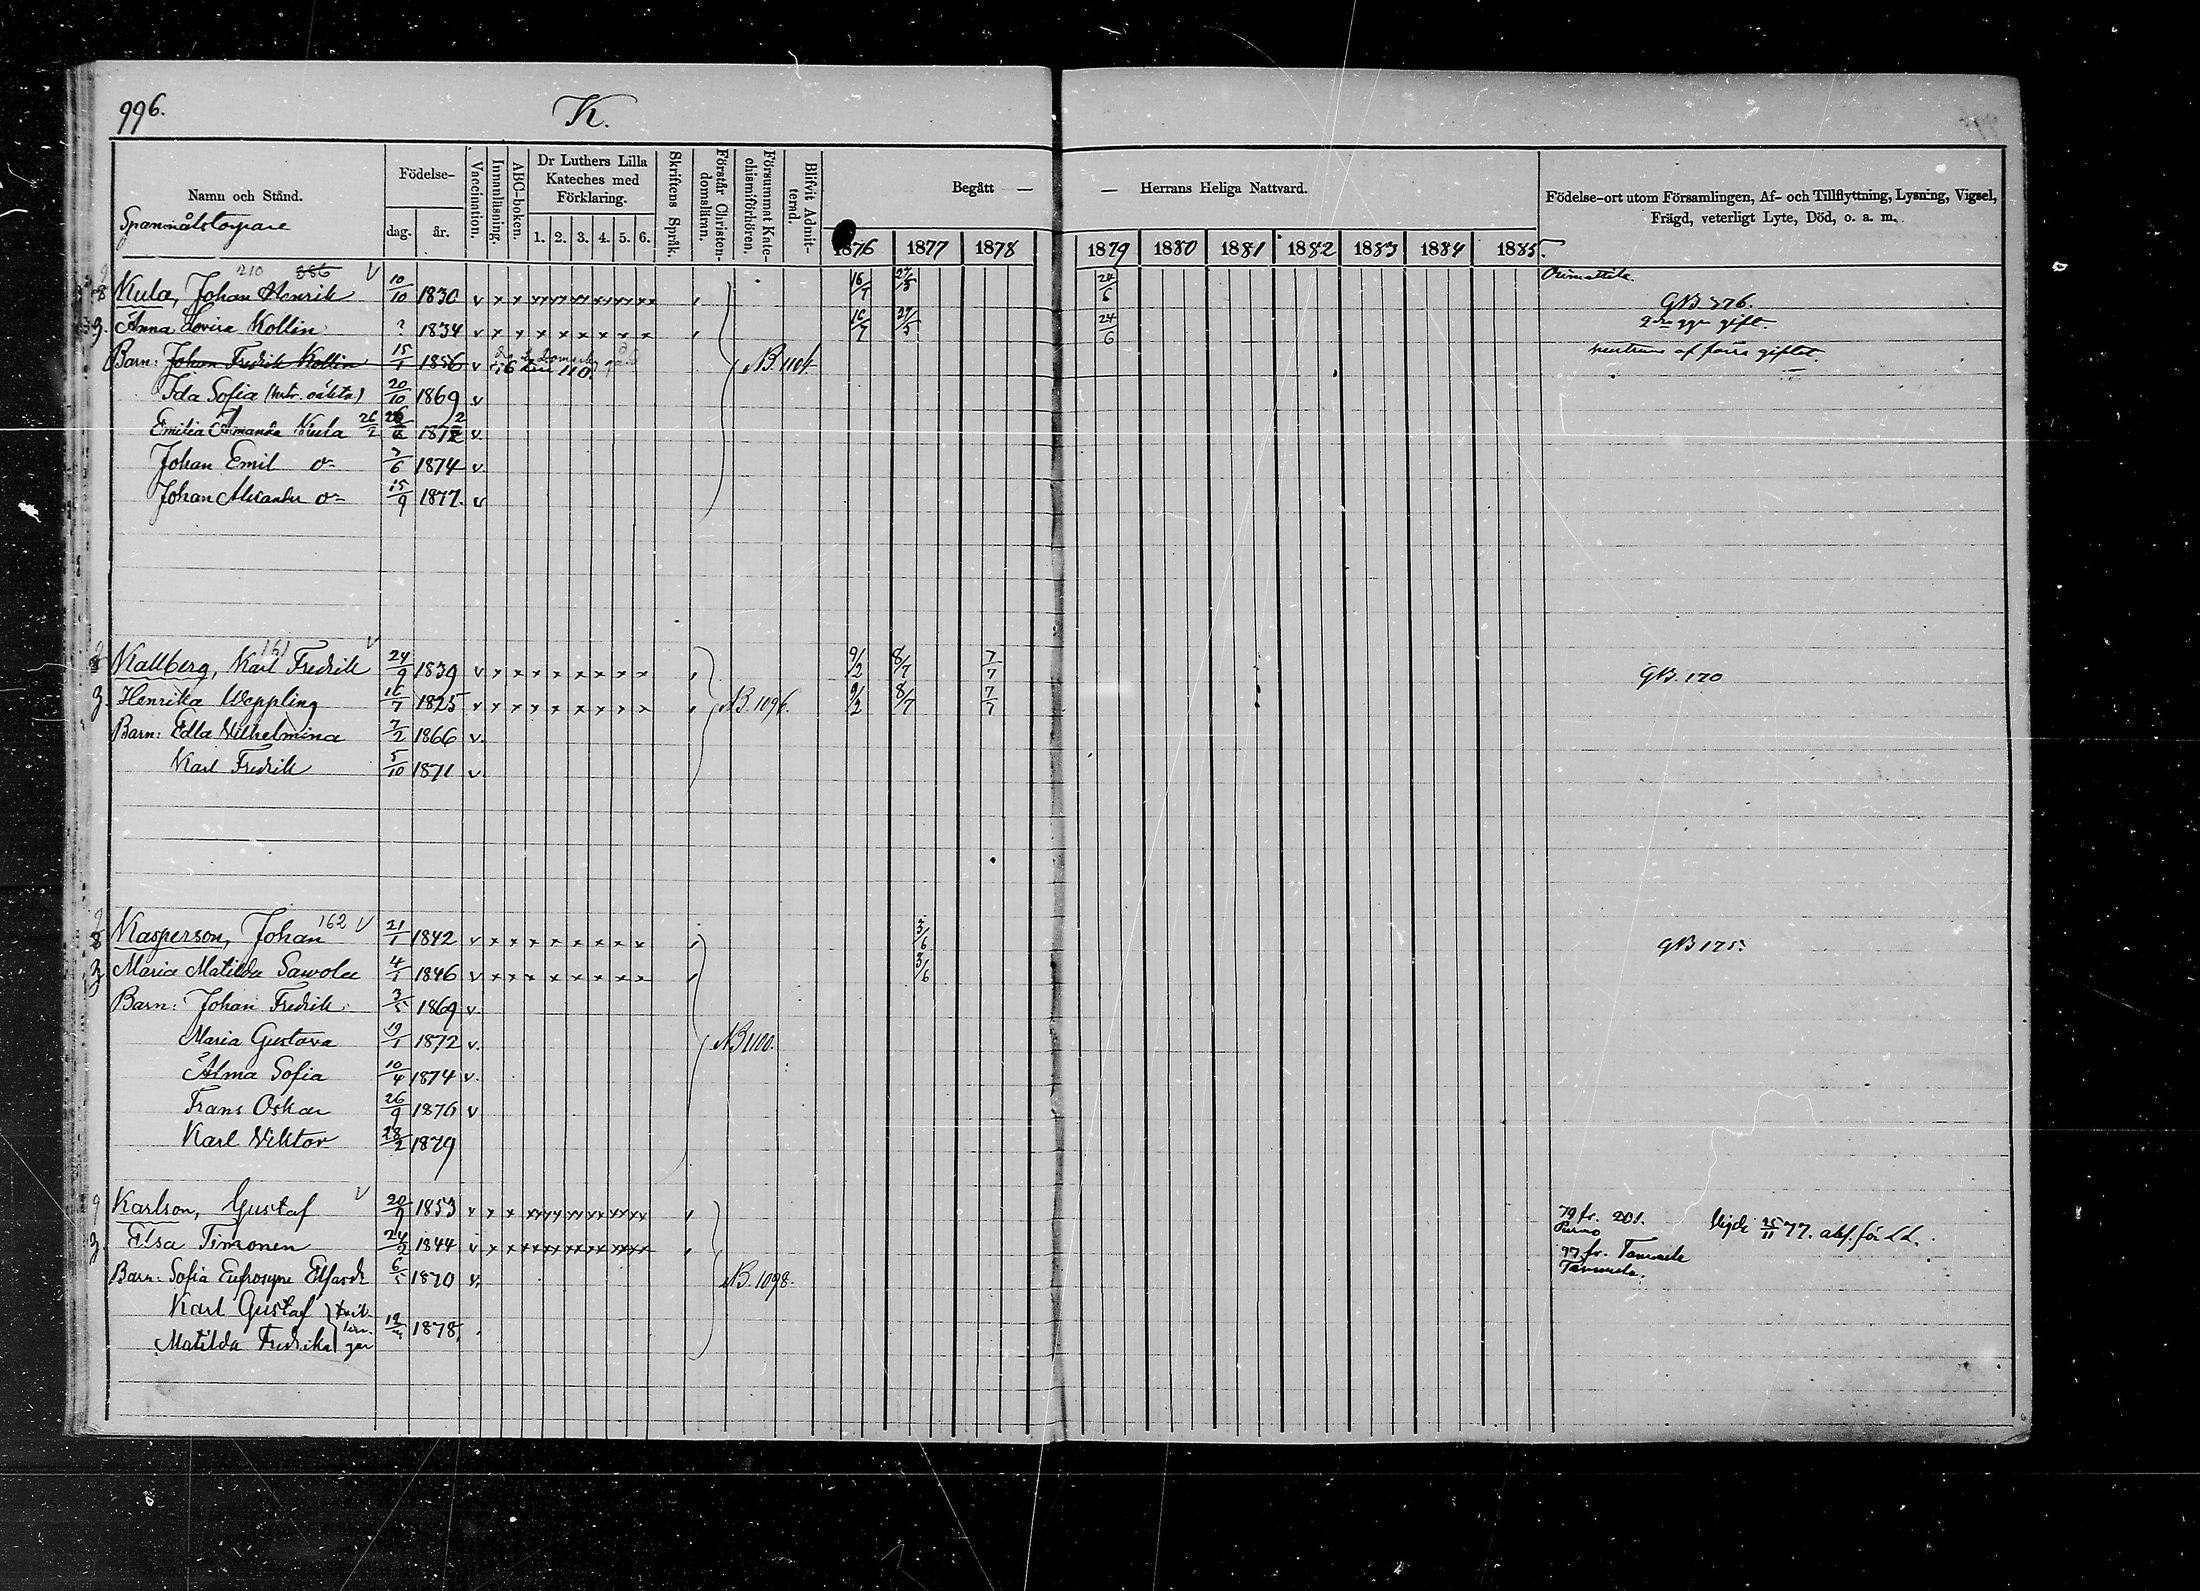 996.
K.
Namn och Stånd.
Födelse-
dag.
år.
Vaccination.
Innanläsning.
ABC-boken.
Dr Luthers Lilla Kateches med Förklaring.
1. 2. 3. 4. 5. 6.
Skriftens Språk.
Förstår Christen-domsläran.
Försummat Kate-chismiförhören.
Blifvit Admit-terad.
Begått — — Herrans Heliga Nattvard.
Födelse-ort utom Församlingen, Af- och Tillflyttning, Lysning, Vigsel,
Frägd, veterligt Lyte, Död, o. a. m.
1876 1877 1878 1879 1880 1881 1882 1883 1884 1885.
210 386 V
Kula, Johan Henrik 10/10 1830 v 16/7 27/5 24/6 Orimattila
GB 376.
Anna Lovisa Kollin 1834 v 16/7 27/5 24/6 gift.
Barn: Johan Fredrik Kollin 15/1 1856 v NB. 1104
Ida Sofia 20/10 1869 v
Emilia Amanda Kula 1872 v.
Johan Emil 7/6 1874 v
Johan Alexander 15/9 1877. v
161 V
Kallberg, Karl Fredrik 24/9 1839 v 9/2 8/7 7/7 GB. 170
Henrika Weppling 16/7 1825 v NB. 1096. 9/2 8/7 7/7
Barn: Edla Vilhelmina 7/2 1866 v.
Karl Fredrik 5/10 1871 v
162 V
Kasperson, Johan 21/1 1842 v 3/6 GB 175.
Maria Matilda Sawola 4/1 1846 v 3/6
Barn: Johan Fredrik 3/5 1869 v.
Maria Gustava 19/1 1872 v. NB 1100.
Alma Sofia 10/4 1874 v.
Frans Oskar 26/9 1876 v
Karl Viktor 28/2 1879
V
Karlson, Gustaf 20/9 1853 v 79 fr. 201. 25/11 77.
Elsa Timonen 24/2 1844 v 77 fr. Tammela
Barn: Sofia Eufrosyne 6/5 1870 v. NB. 1098. Tammela.
Karl Gustaf
Matilda Fredrika 1878.